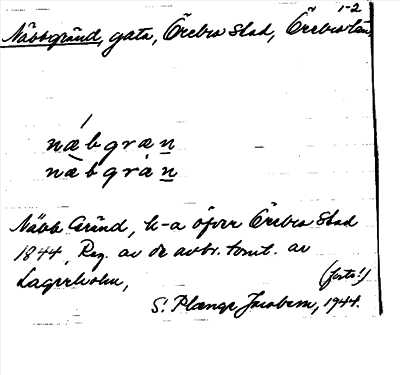 1-2
Näbbgränd, gata, Örebro stad, Örebro län
næbgræn
næbgràn
Näbb Gränd, k-a öfver Örebro Stad
1844, Reg. av de avbr. tomt. av
Lagerholm,
(foto!)
S. Plænge Jacobson, 1944.